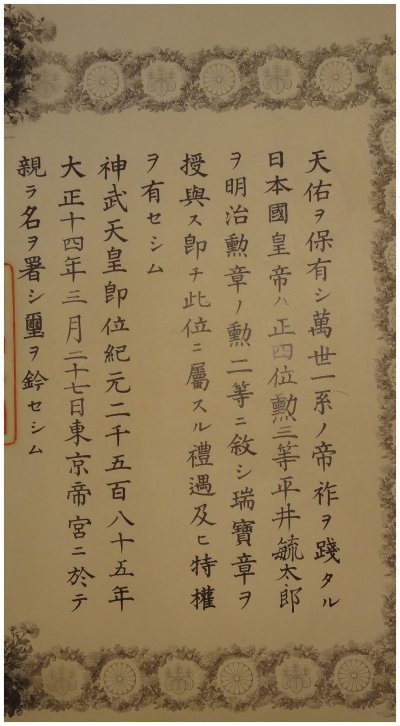 天佑ヲ保有シ萬世一系ノ帝祚ヲ踐タル
日本國皇帝ハ正四位勲三等平井毓太郎
ヲ明治勲章ノ勲二等ニ敘シ瑞寶章ヲ
授與ス卽チ此位ニ屬スル禮遇及ヒ特權
ヲ有セシム
神武天皇卽位紀元二千五百八十五年
大正十四年三月二十七日東京帝宮ニ於テ
親ラ名ヲ署シ璽ヲ鈐セシム